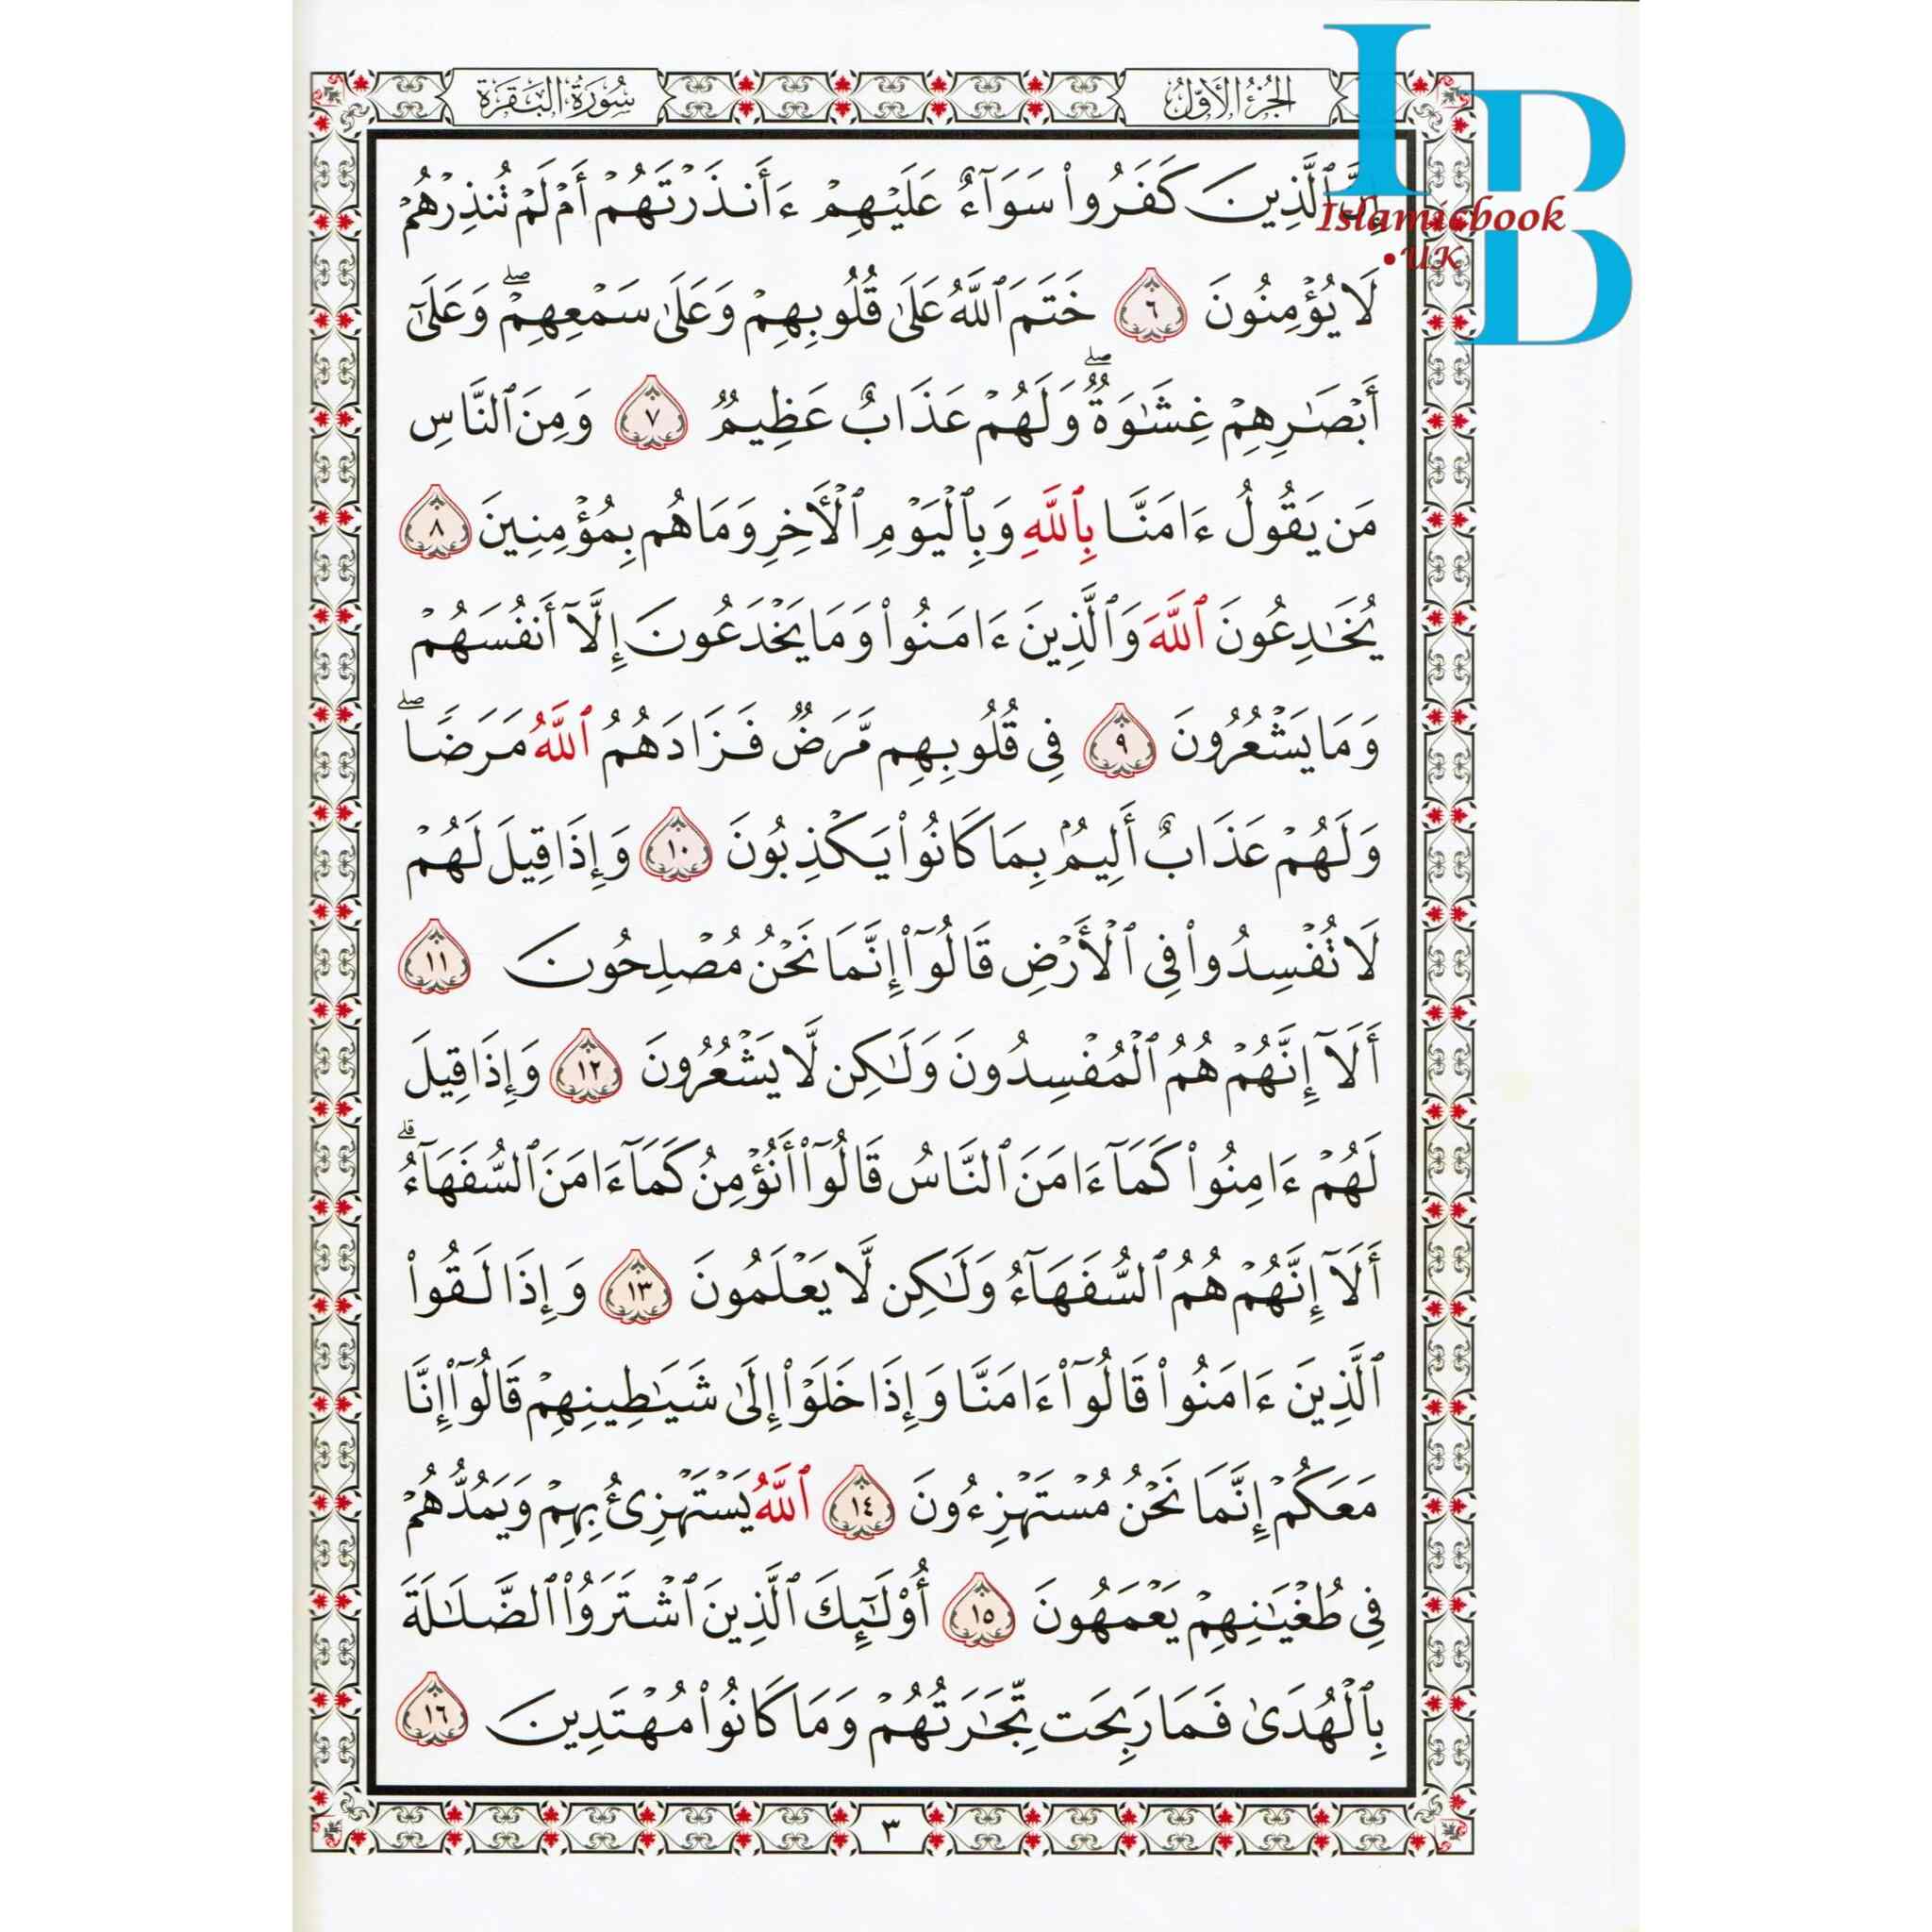 الجزء الأول
سورة البقرة
إِنَّ ٱلَّذِينَ كَفَرُوا۟ سَوَآءٌ عَلَيْهِمْ ءَأَنذَرْتَهُمْ أَمْ لَمْ تُنذِرْهُمْ
لَا يُؤْمِنُونَ ٦ خَتَمَ ٱللَّهُ عَلَىٰ قُلُوبِهِمْ وَعَلَىٰ سَمْعِهِمْ ۖ وَعَلَىٰٓ
أَبْصَـٰرِهِمْ غِشَـٰوَةٌ ۖ وَلَهُمْ عَذَابٌ عَظِيمٌ ٧ وَمِنَ ٱلنَّاسِ
مَن يَقُولُ ءَامَنَّا بِٱللَّهِ وَبِٱلْيَوْمِ ٱلْأَخِرِ وَمَا هُم بِمُؤْمِنِينَ ٨
يُخَـٰدِعُونَ ٱللَّهَ وَٱلَّذِينَ ءَامَنُوا۟ وَمَا يَخْدَعُونَ إِلَّآ أَنفُسَهُمْ
وَمَا يَشْعُرُونَ ٩ فِى قُلُوبِهِم مَّرَضٌ فَزَادَهُمُ ٱللَّهُ مَرَضًا ۖ
وَلَهُمْ عَذَابٌ أَلِيمٌۢ بِمَا كَانُوا۟ يَكْذِبُونَ ١٠ وَإِذَا قِيلَ لَهُمْ
لَا تُفْسِدُوا۟ فِى ٱلْأَرْضِ قَالُوٓا۟ إِنَّمَا نَحْنُ مُصْلِحُونَ ١١
أَلَآ إِنَّهُمْ هُمُ ٱلْمُفْسِدُونَ وَلَـٰكِن لَّا يَشْعُرُونَ ١٢ وَإِذَا قِيلَ
لَهُمْ ءَامِنُوا۟ كَمَآ ءَامَنَ ٱلنَّاسُ قَالُوٓا۟ أَنُؤْمِنُ كَمَآ ءَامَنَ ٱلسُّفَهَآءُ ۗ
أَلَآ إِنَّهُمْ هُمُ ٱلسُّفَهَآءُ وَلَـٰكِن لَّا يَعْلَمُونَ ١٣ وَإِذَا لَقُوا۟
ٱلَّذِينَ ءَامَنُوا۟ قَالُوٓا۟ ءَامَنَّا وَإِذَا خَلَوْا۟ إِلَىٰ شَيَـٰطِينِهِمْ قَالُوٓا۟ إِنَّا
مَعَكُمْ إِنَّمَا نَحْنُ مُسْتَهْزِءُونَ ١٤ ٱللَّهُ يَسْتَهْزِئُ بِهِمْ وَيَمُدُّهُمْ
فِى طُغْيَـٰنِهِمْ يَعْمَهُونَ ١٥ أُو۟لَـٰٓئِكَ ٱلَّذِينَ ٱشْتَرَوُا۟ ٱلضَّلَـٰلَةَ
بِٱلْهُدَىٰ فَمَا رَبِحَت تِّجَـٰرَتُهُمْ وَمَا كَانُوا۟ مُهْتَدِينَ ١٦
٣
IBD
Islamicbook
•UK